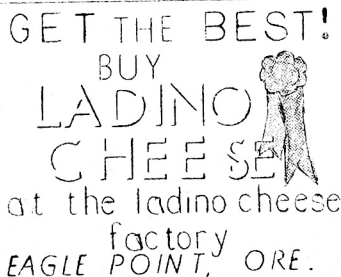 GET THE BEST!
BUY
LADINO
CHEESE
at the ladino cheese
factory
EAGLE POINT, ORE.